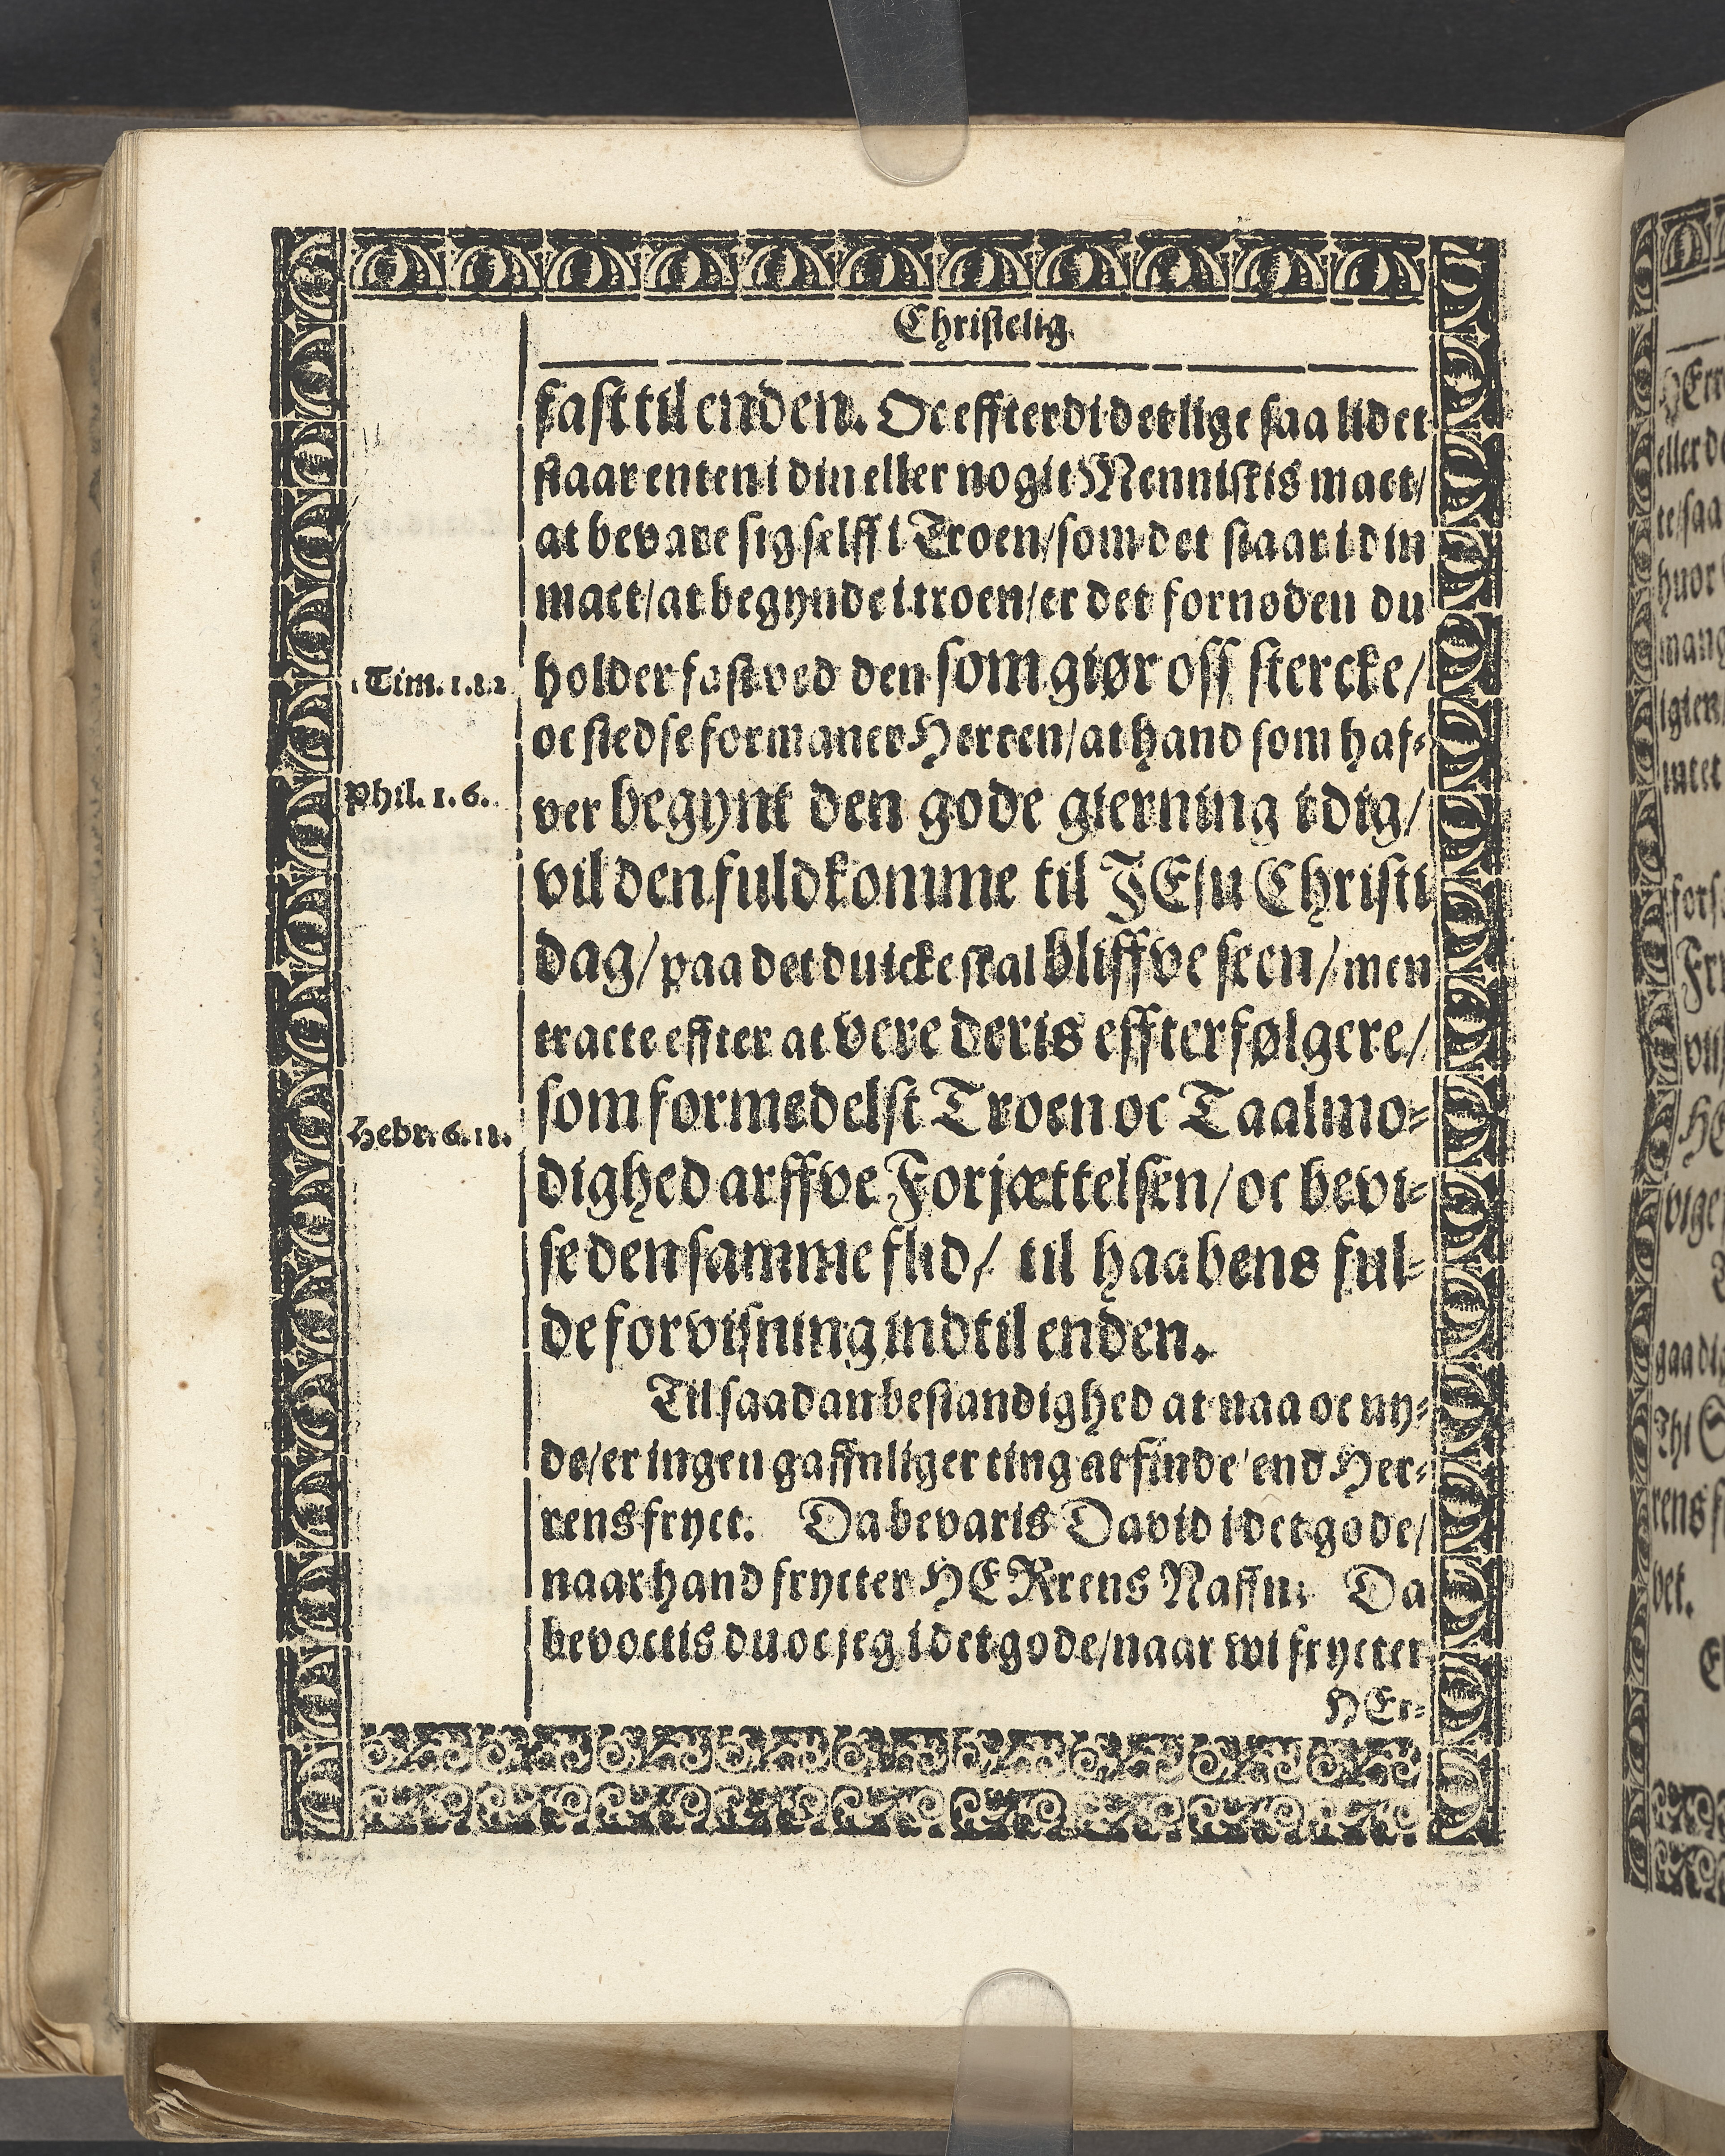 Christelig
fast til enden. Oc effterdi det lige saa lidet
staar enten i din eller nogit Menniskis mact/
at bevare sig selff i Troen/ som det staar i din
mact/ at begynde i troen/ er det fornøden du
1 Tim. 1.12
holder fast ved den som giør oss stercke/
oc stedse formaner Herren/ at hand som haf-
Phil. 1. 6.
ver begynt den gode gierning i dig/
vil den fuldkomme til JEsu Christi
dag/ paa det du icke skal bliffve seen/ men
tracte effter at vere deris effterfølgere/
som formedelst Troen oc Taalmo-
Hebr. 6. 11.
dighed arffve Forjættelsen/ oc bevi-
se den samme flid/ til haabens ful-
de forvisning indtil enden.
Til saadan bestandighed at naa oc ny-
de/ er ingen gaffnliger ting at finde/ end Her-
rens fryct. Da bevaris David i det gode/
naar hand frycter HERrens Naffn: Da
bevoctis du oc jeg i det gode/ naar wi frycter
HEr-